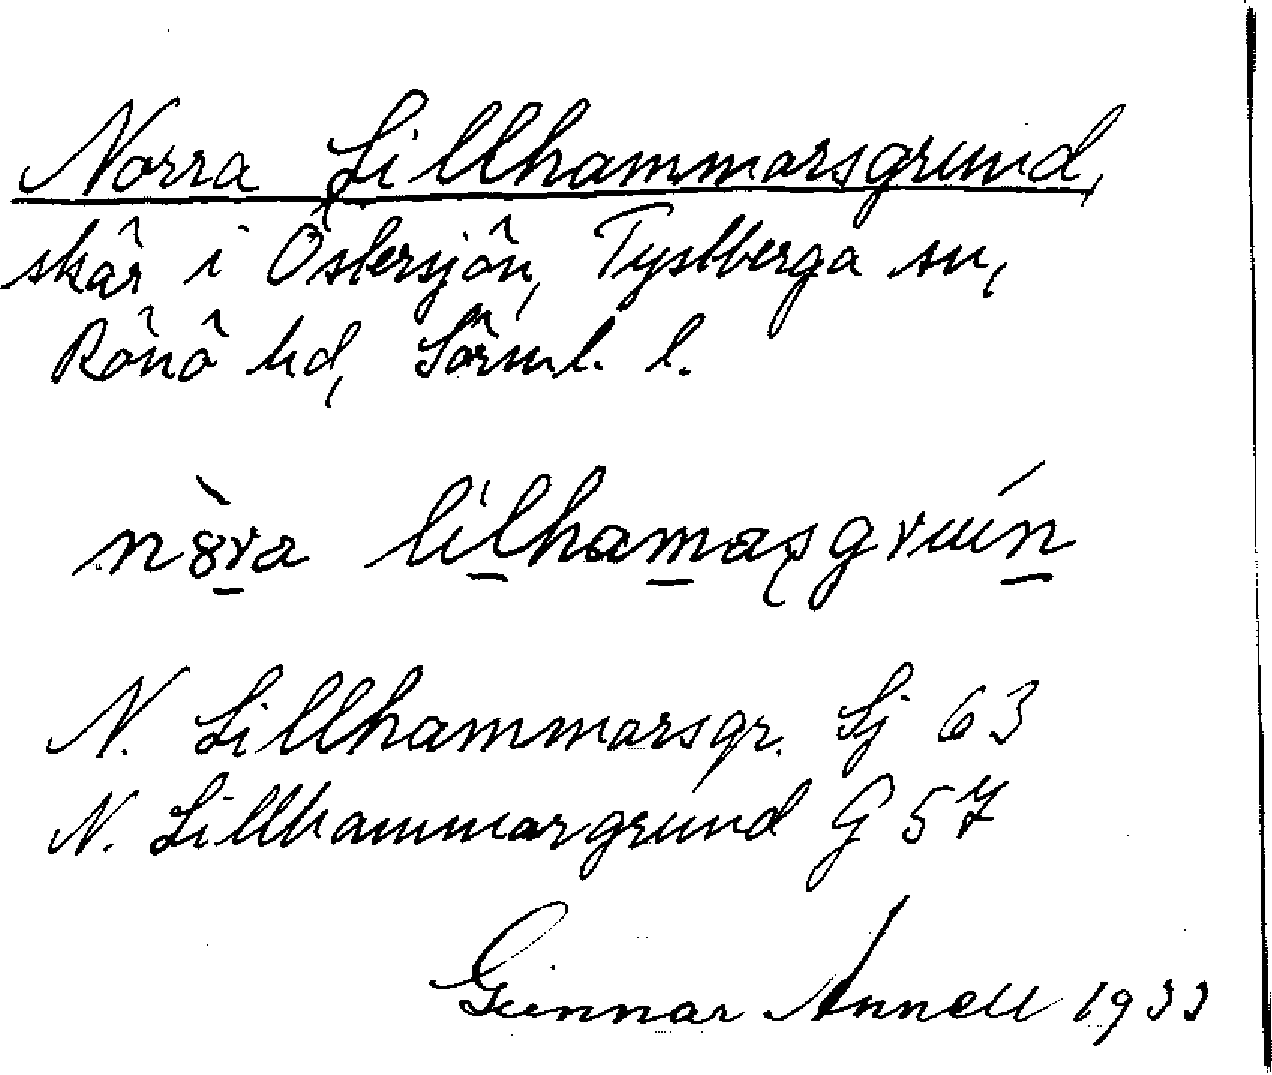 Norra Lillhammarsgrund,
skär i Östersjön, Tystberga sn,
Rönö hd, Sörml. l.
lilhamasgrun
N. Lillhammarsgr. Sj 63
N. Lillhammargrund G 57
Gunnar Annell 1933